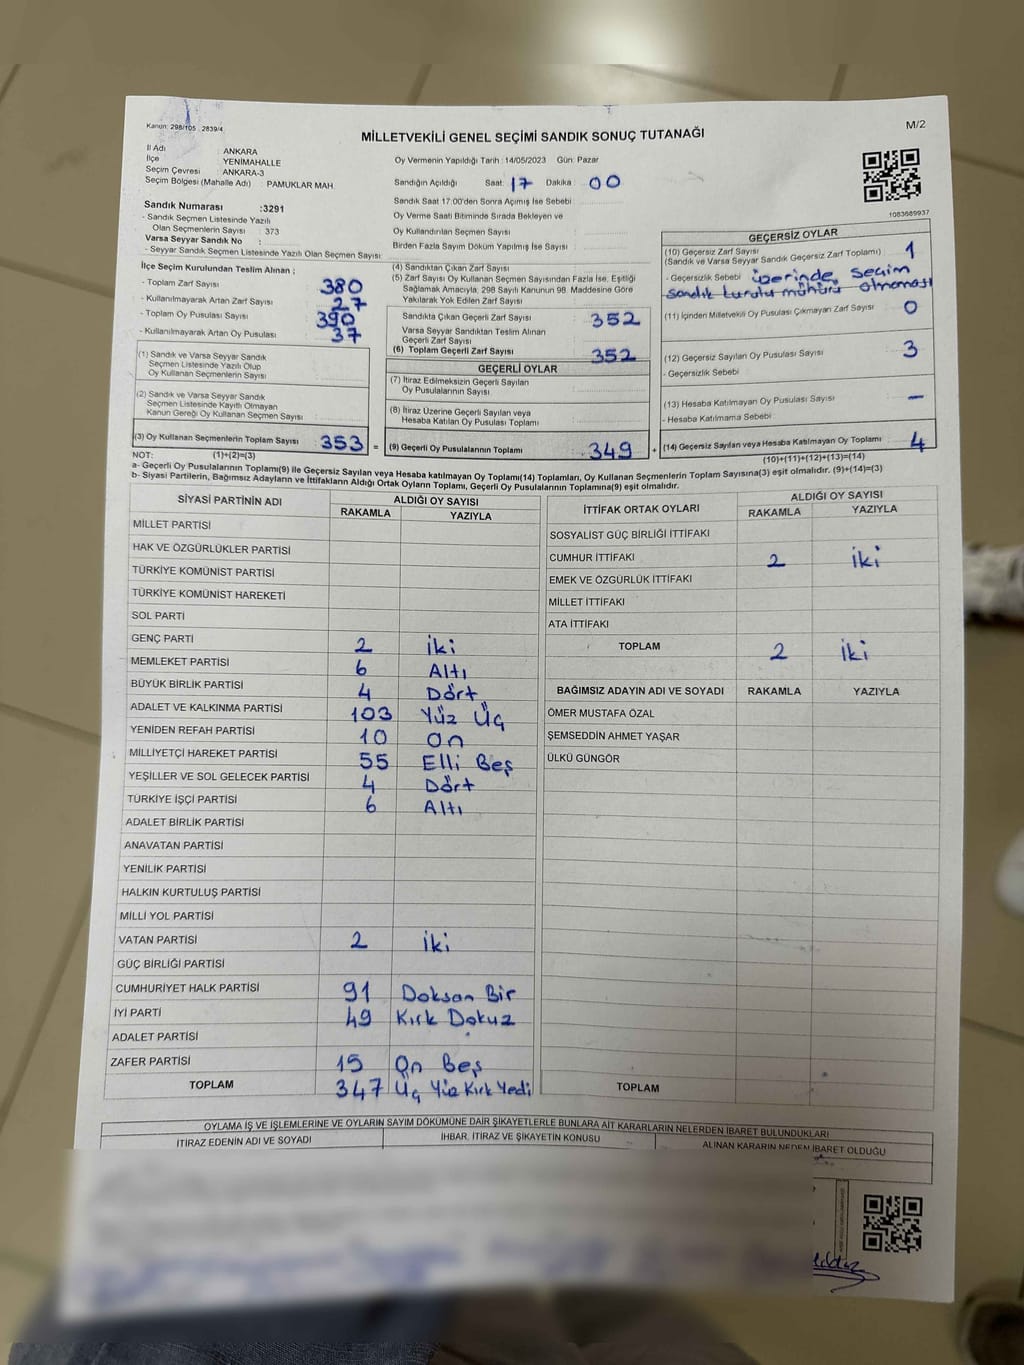 Kanun: 298/105 , 2839/4
M/2
MİLLETVEKİLİ GENEL SEÇİMİ SANDIK SONUÇ TUTANAĞI
İl Adı : ANKARA
İlçe : YENİMAHALLE
Seçim Çevresi : ANKARA-3
Seçim Bölgesi (Mahalle Adı) : PAMUKLAR MAH.
Sandık Numarası :3291
- Sandık Seçmen Listesinde Yazılı
Olan Seçmenlerin Sayısı : 373
Varsa Seyyar Sandık No :
- Seyyar Sandık Seçmen Listesinde Yazılı Olan Seçmen Sayısı :
Oy Vermenin Yapıldığı Tarih : 14/05/2023 Gün: Pazar
Sandığın Açıldığı Saat: 17 Dakika : 00
Sandık Saat 17:00'den Sonra Açımış İse Sebebi :
Oy Verme Saati Bitiminde Sırada Bekleyen ve
Oy Kullandırılan Seçmen Sayısı :
Birden Fazla Sayım Döküm Yapılmış İse Sayısı :
1083689937
İlçe Seçim Kurulundan Teslim Alınan ;
- Toplam Zarf Sayısı : 380
- Kullanılmayarak Artan Zarf Sayısı : 27
- Toplam Oy Pusulası Sayısı : 390
- Kullanılmayarak Artan Oy Pusulası : 37
(1) Sandık ve Varsa Seyyar Sandık
Seçmen Listesinde Yazılı Olup
Oy Kullanan Seçmenlerin Sayısı :
(2) Sandık ve Varsa Seyyar Sandık
Seçmen Listesinde Kayıtlı Olmayan
Kanun Gereği Oy Kullanan Seçmen Sayısı :
(3) Oy Kullanan Seçmenlerin Toplam Sayısı : 353 =
(4) Sandıktan Çıkan Zarf Sayısı
(5) Zarf Sayısı Oy Kullanan Seçmen Sayısından Fazla İse, Eşitliği
Sağlamak Amacıyla, 298 Sayılı Kanunun 98. Maddesine Göre
Yakılarak Yok Edilen Zarf Sayısı :
Sandıkta Çıkan Geçerli Zarf Sayısı : 352
Varsa Seyyar Sandıktan Teslim Alınan
Geçerli Zarf Sayısı :
(6) Toplam Geçerli Zarf Sayısı : 352
GEÇERLİ OYLAR
(7) İtiraz Edilmeksizin Geçerli Sayılan
Oy Pusulalarının Sayısı :
(8) İtiraz Üzerine Geçerli Sayılan veya
Hesaba Katılan Oy Pusulası Toplamı :
(9) Geçerli Oy Pusulalarının Toplamı : 349 +
GEÇERSİZ OYLAR
(10) Geçersiz Zarf Sayısı : 1
(Sandık ve Varsa Seyyar Sandık Geçersiz Zarf Toplamı)
- Geçersizlik Sebebi : üzerinde seçim
sandık kurulu mühürü olmaması
(11) İçinden Milletvekili Oy Pusulası Çıkmayan Zarf Sayısı : 0
(12) Geçersiz Sayılan Oy Pusulası Sayısı : 3
- Geçersizlik Sebebi
(13) Hesaba Katılmayan Oy Pusulası Sayısı : –
- Hesaba Katılmama Sebebi
(14) Geçersiz Sayılan veya Hesaba Katılmayan Oy Toplamı : 4
NOT: (1)+(2)=(3)
(10)+(11)+(12)+(13)=(14)
a- Geçerli Oy Pusulalarının Toplamı(9) ile Geçersiz Sayılan veya Hesaba katılmayan Oy Toplamı(14) Toplamları, Oy Kullanan Seçmenlerin Toplam Sayısına(3) eşit olmalıdır. (9)+(14)=(3)
b- Siyasi Partilerin, Bağımsız Adayların ve İttifakların Aldığı Ortak Oyların Toplamı, Geçerli Oy Pusulalarının Toplamına(9) eşit olmalıdır.
SİYASİ PARTİNİN ADI ALDIĞI OY SAYISI
RAKAMLA YAZIYLA
MİLLET PARTİSİ
HAK VE ÖZGÜRLÜKLER PARTİSİ
TÜRKİYE KOMÜNİST PARTİSİ
TÜRKİYE KOMÜNİST HAREKETİ
SOL PARTİ
GENÇ PARTİ 2 İki
MEMLEKET PARTİSİ 6 Altı
BÜYÜK BİRLİK PARTİSİ 4 Dört
ADALET VE KALKINMA PARTİSİ 103 Yüz Üç
YENİDEN REFAH PARTİSİ 10 On
MİLLİYETÇİ HAREKET PARTİSİ 55 Elli Beş
YEŞİLLER VE SOL GELECEK PARTİSİ 4 Dört
TÜRKİYE İŞÇİ PARTİSİ 6 Altı
ADALET BİRLİK PARTİSİ
ANAVATAN PARTİSİ
YENİLİK PARTİSİ
HALKIN KURTULUŞ PARTİSİ
MİLLİ YOL PARTİSİ
VATAN PARTİSİ 2 İki
GÜÇ BİRLİĞİ PARTİSİ
CUMHURİYET HALK PARTİSİ 91 Doksan Bir
İYİ PARTİ 49 Kırk Dokuz
ADALET PARTİSİ
ZAFER PARTİSİ 15 On Beş
TOPLAM 347 Üç Yüz Kırk Yedi
İTTİFAK ORTAK OYLARI ALDIĞI OY SAYISI
RAKAMLA YAZIYLA
SOSYALİST GÜÇ BİRLİĞİ İTTİFAKI
CUMHUR İTTİFAKI 2 İki
EMEK VE ÖZGÜRLÜK İTTİFAKI
MİLLET İTTİFAKI
ATA İTTİFAKI
TOPLAM 2 İki
BAĞIMSIZ ADAYIN ADI VE SOYADI RAKAMLA YAZIYLA
ÖMER MUSTAFA ÖZAL
ŞEMSEDDİN AHMET YAŞAR
ÜLKÜ GÜNGÖR
TOPLAM
OYLAMA İŞ VE İŞLEMLERİNE VE OYLARIN SAYIM DÖKÜMÜNE DAİR ŞİKAYETLERLE BUNLARA AİT KARARLARIN NELERDEN İBARET BULUNDUKLARI
İTİRAZ EDENİN ADI VE SOYADI İHBAR, İTİRAZ VE ŞİKAYETİN KONUSU ALINAN KARARIN NEDEN İBARET OLDUĞU